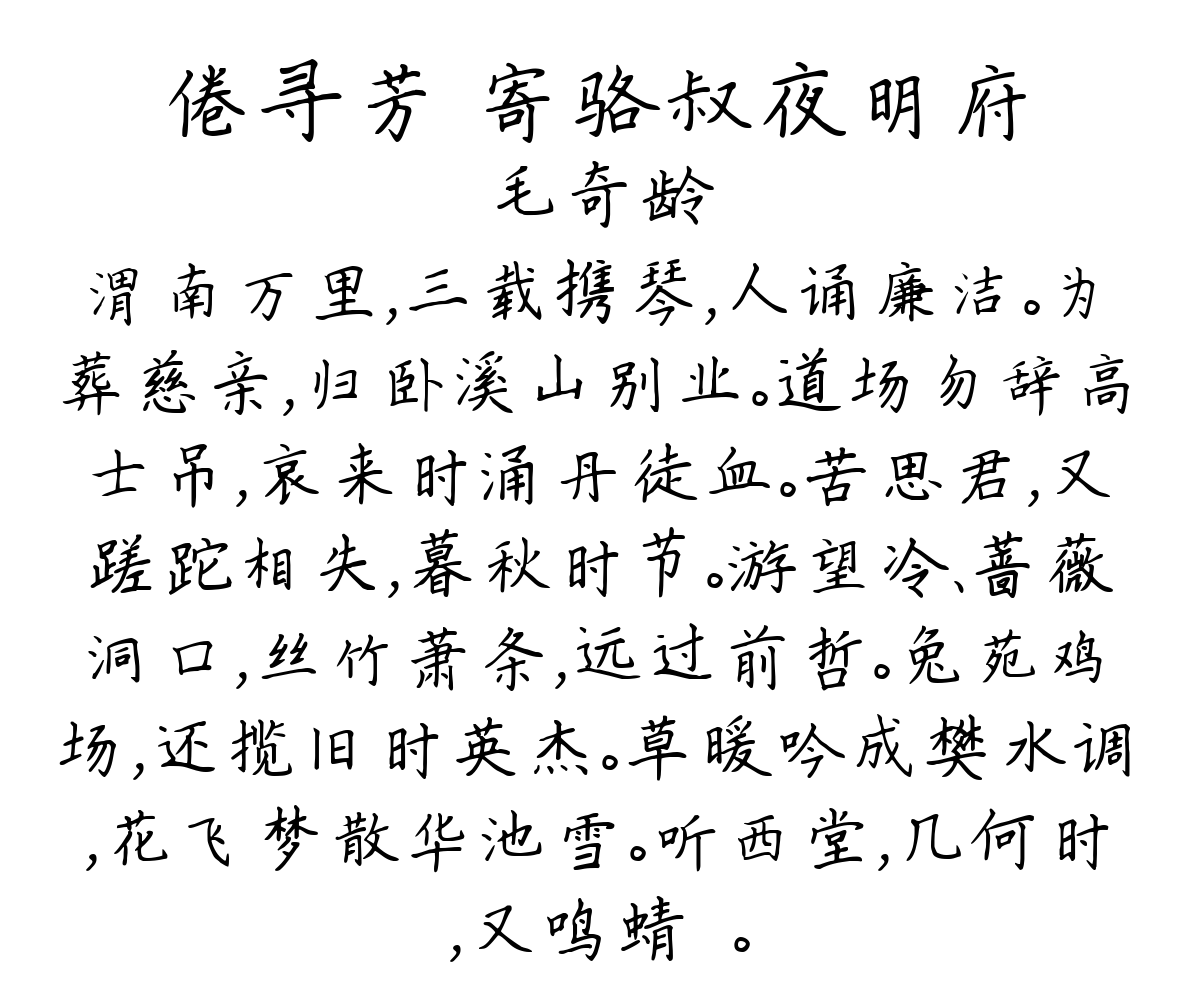 倦寻芳 寄骆叔夜明府
毛奇龄
渭南万里,三载携琴,人诵廉洁。为
葬慈亲,归卧溪山别业。道场勿辞高
士吊,哀来时涌丹徒血。苦思君,又
蹉跎相失,暮秋时节。游望冷、蔷薇
洞口,丝竹萧条,远过前哲。兔苑鸡
场,还揽旧时英杰。草暖吟成樊水调
,花飞梦散华池雪。听西堂,几何时
,又鸣蜻 。